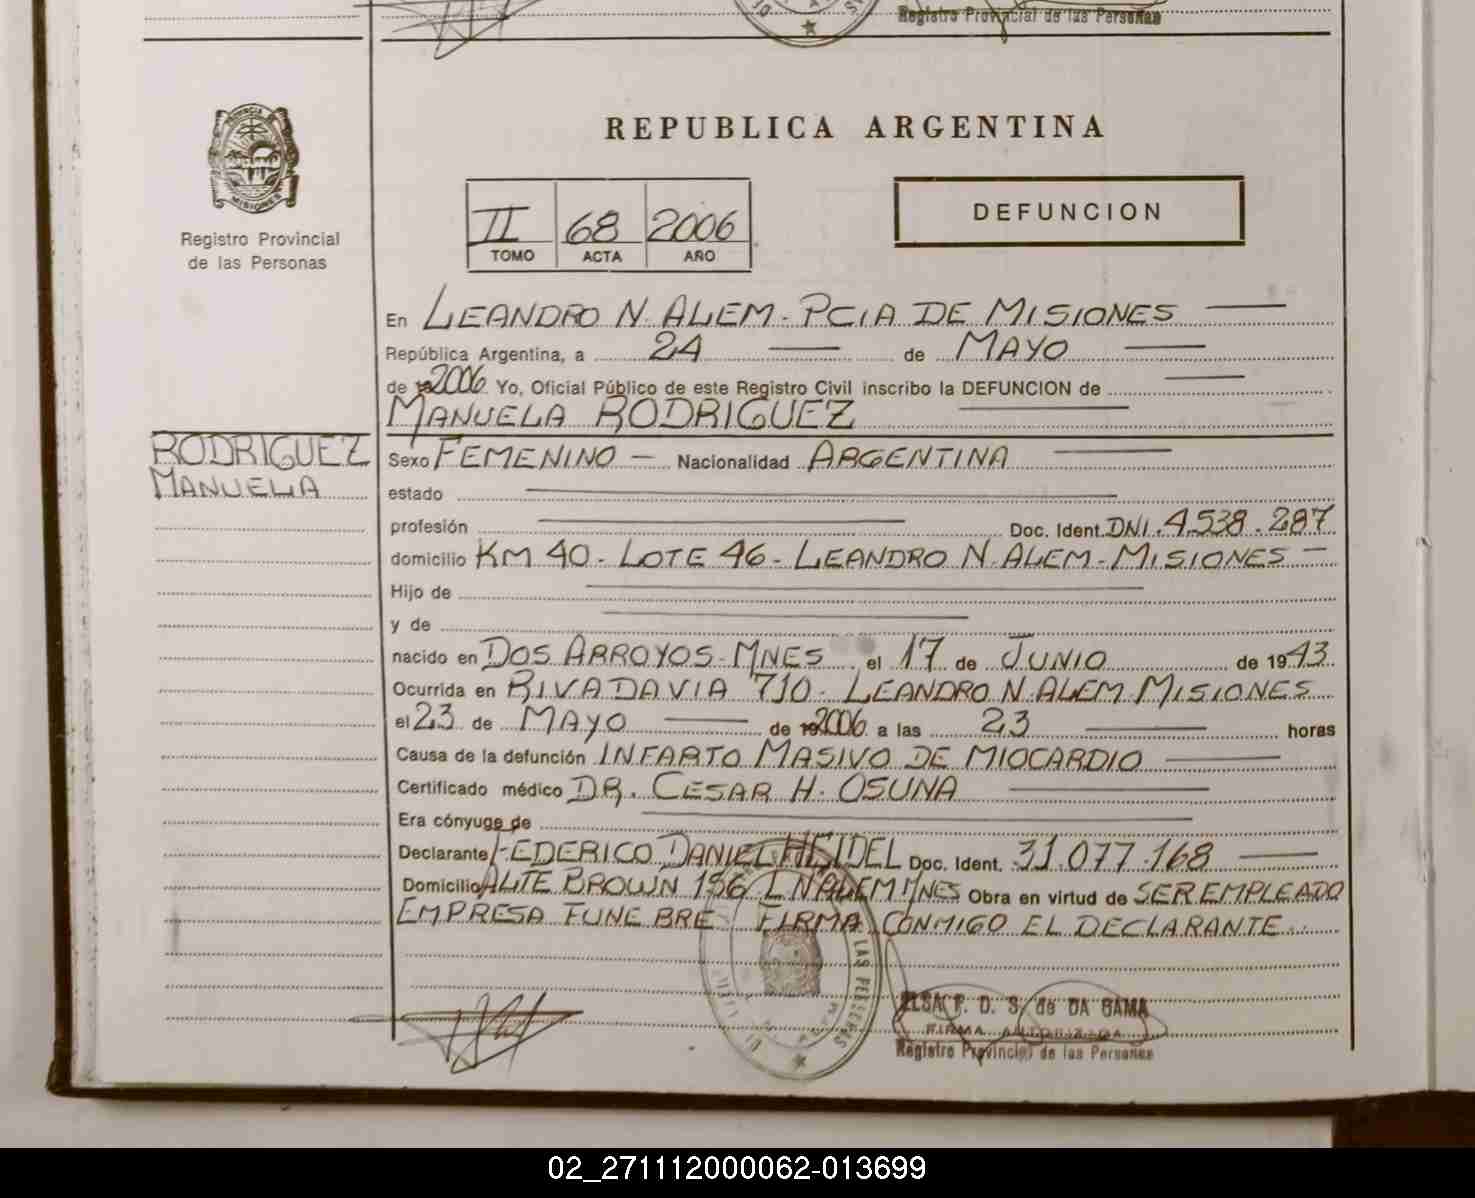 Registro Provincial de las Personas
PROVINCIA DE
MISIONES
Registro Provincial
de las Personas
REPUBLICA ARGENTINA
II 68 2006
TOMO ACTA AÑO
DEFUNCION
En LEANDRO N. ALEM - PCIA DE MISIONES
República Argentina, a 24 de MAYO
de 2006 Yo, Oficial Público de este Registro Civil inscribo la DEFUNCION de
MANUELA RODRIGUEZ
RODRIGUEZ
MANUELA
Sexo FEMENINO - Nacionalidad ARGENTINA
estado
profesión Doc. Ident. DNI. 4.538.287
domicilio KM 40 - LOTE 46 - LEANDRO N. ALEM - MISIONES -
Hijo de
y de
nacido en DOS ARROYOS - MNES el 17 de JUNIO de 1943
Ocurrida en RIVADAVIA 710 - LEANDRO N. ALEM - MISIONES
el 23 de MAYO de 2006 a las 23 horas
Causa de la defunción INFARTO MASIVO DE MIOCARDIO
Certificado médico DR. CESAR H. OSUNA
Era cónyuge de
Declarante FEDERICO DANIEL HEIDEL Doc. Ident. 31.077.168
Domicilio ALTE BROWN 156 L N ALEM MNES Obra en virtud de SER EMPLEADO
EMPRESA FUNEBRE FIRMA CONMIGO EL DECLARANTE
LAS PERSONAS
ELSA F. D. S. de DA GAMA
FIRMA AUTORIZADA
Registro Provincial de las Personas
02_271112000062-013699